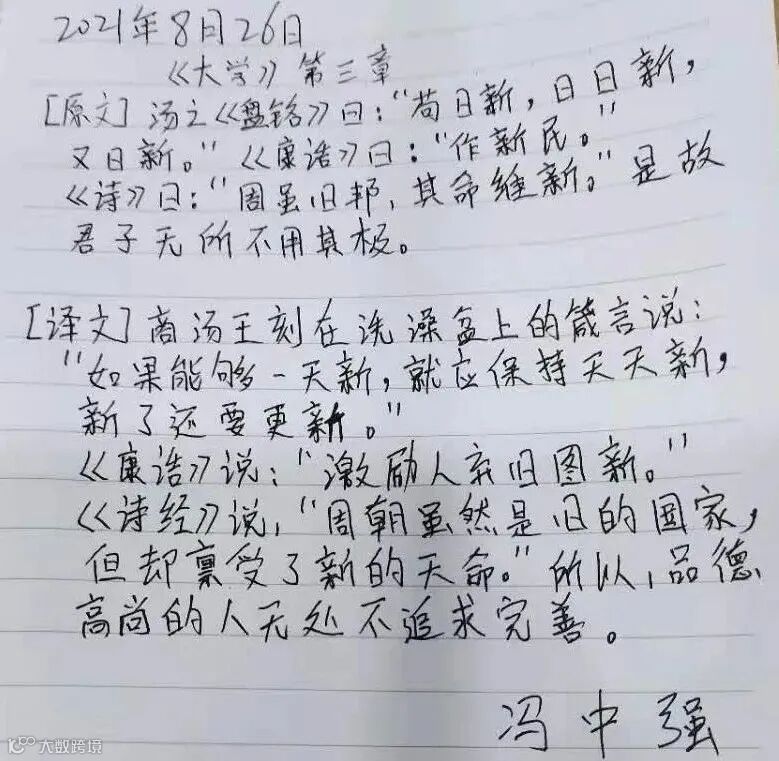 2021年8月26日
《大学》第三章
[原文] 汤之《盘铭》曰：“苟日新，日日新，
又日新。”《康诰》曰：“作新民。”
《诗》曰：“周虽旧邦，其命维新。”是故
君子无所不用其极。
[译文] 商汤王刻在洗澡盆上的箴言说：
“如果能够一天新，就应保持天天新，
新了还要更新。”
《康诰》说：“激励人弃旧图新。”
《诗经》说，“周朝虽然是旧的国家，
但却禀受了新的天命。”所以，品德
高尚的人无处不追求完善。
冯中强
100 大数跨境